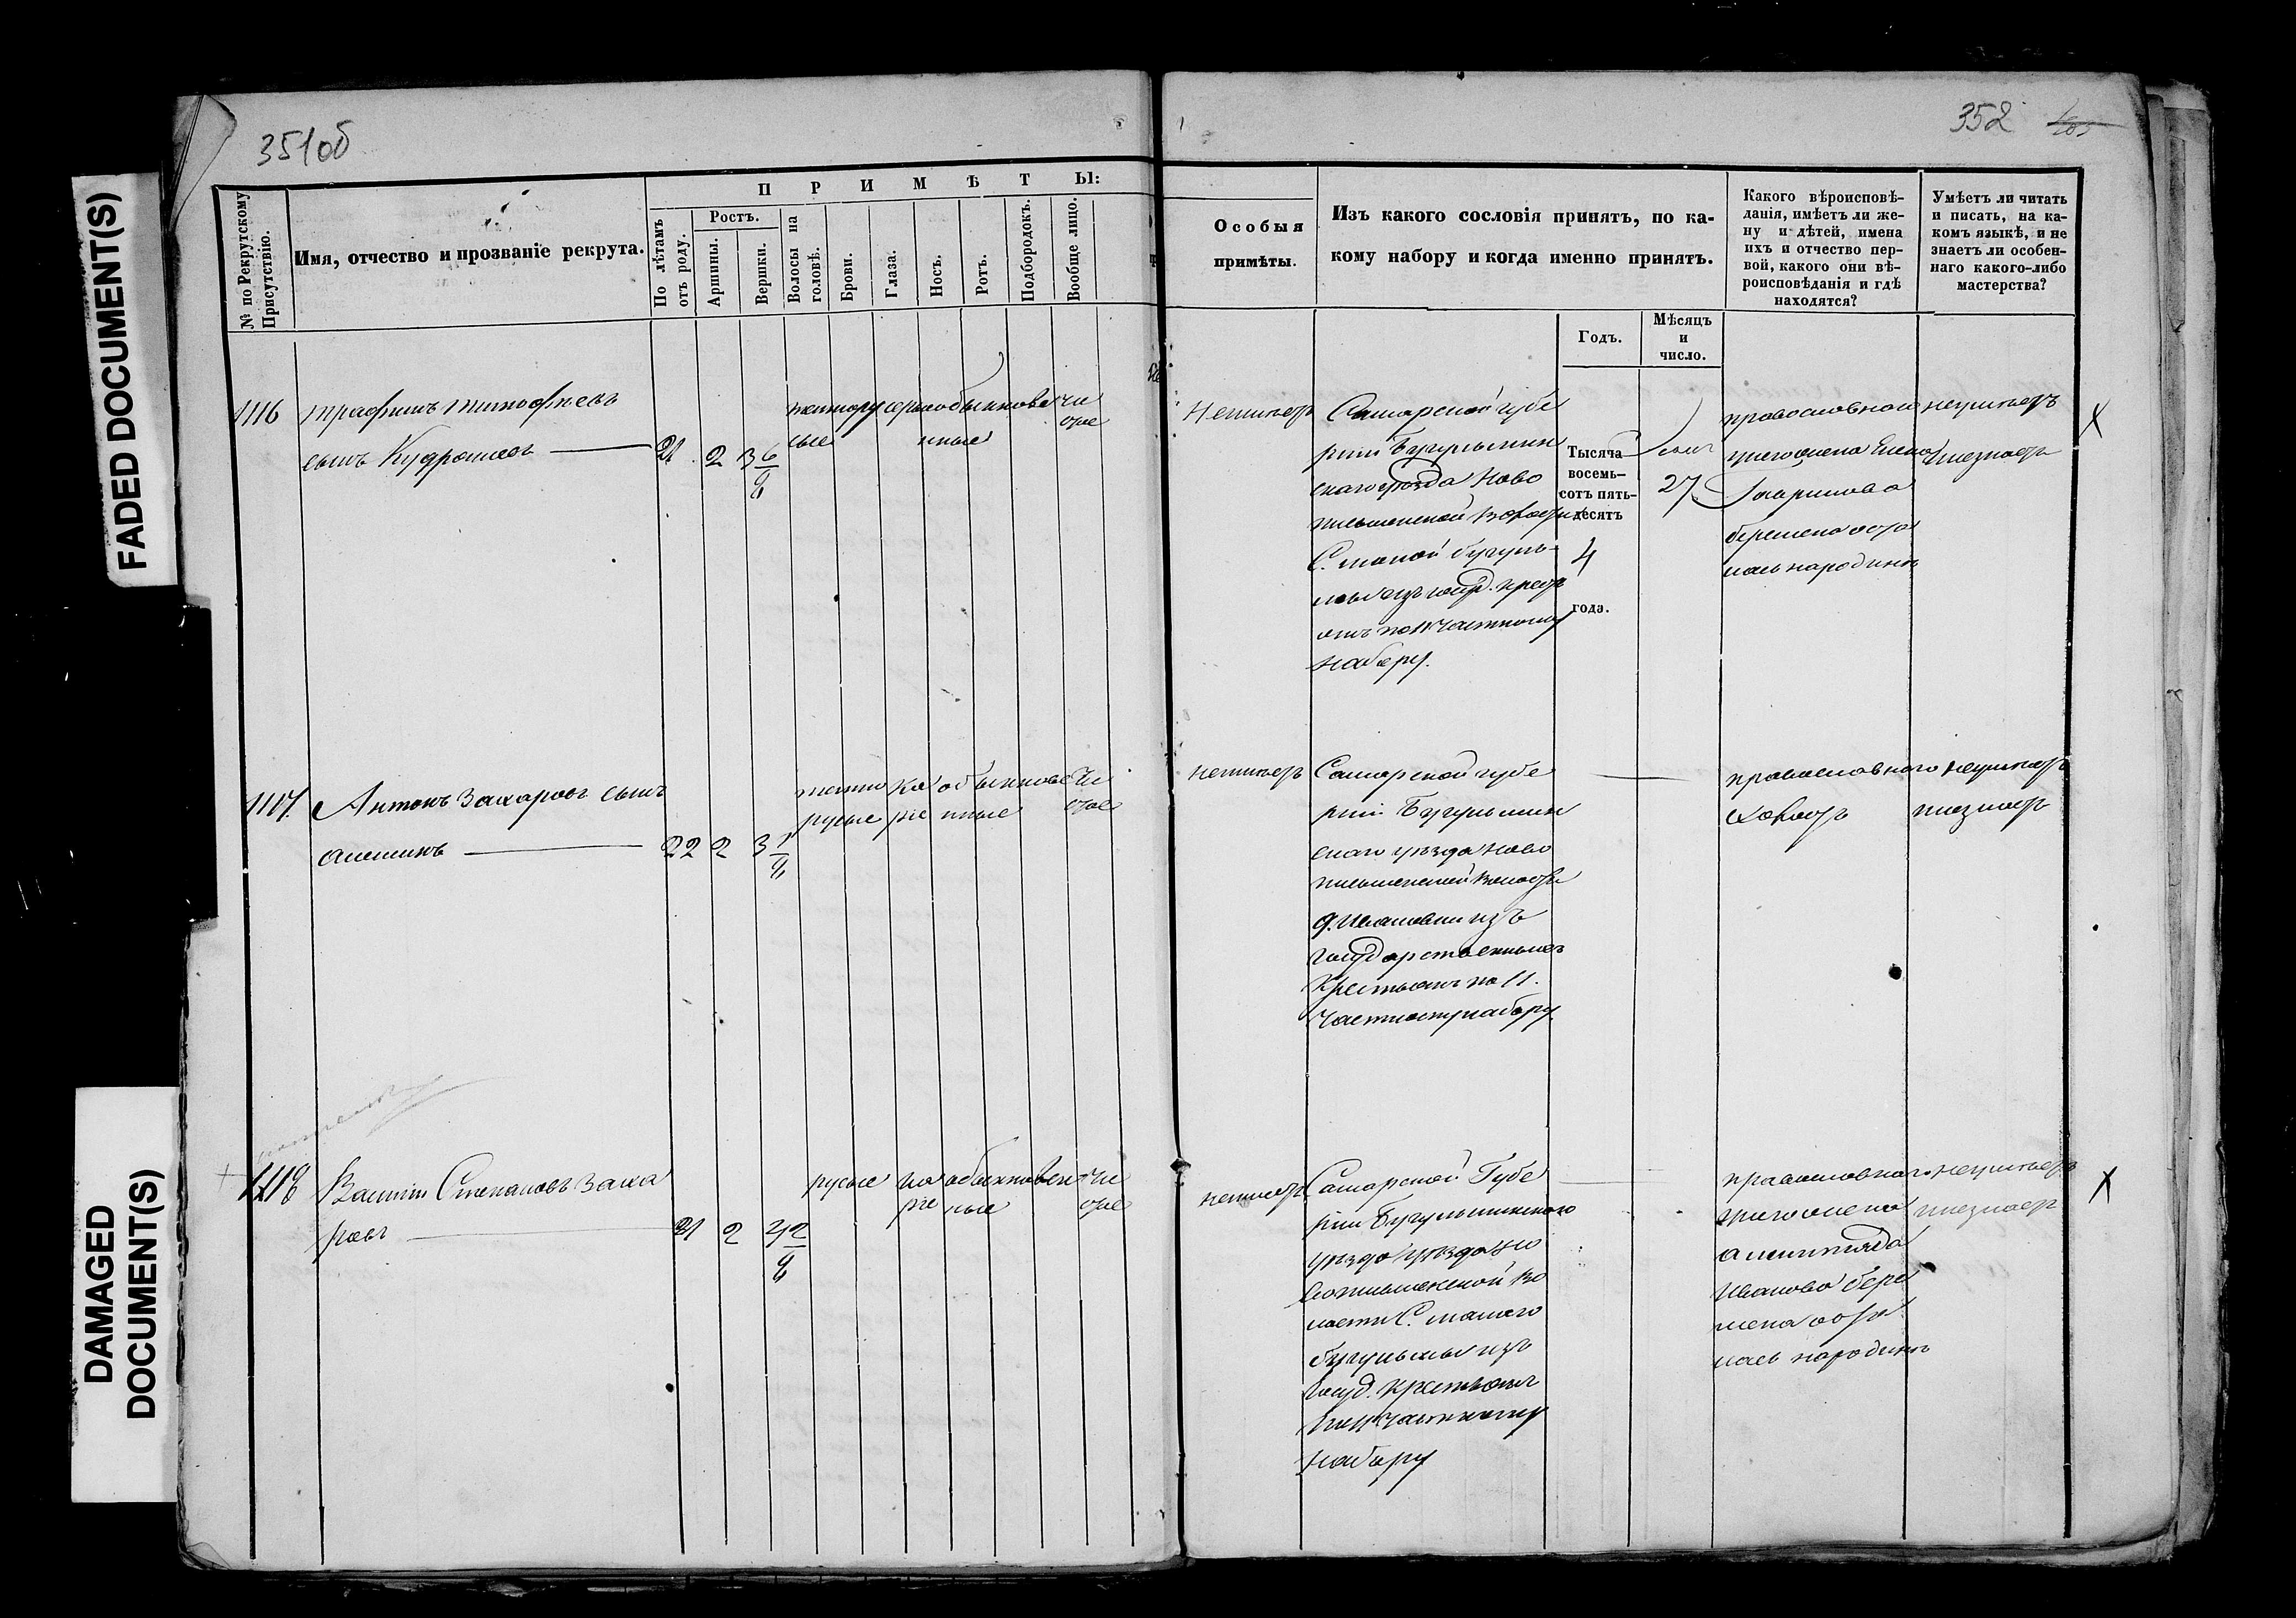 FADED DOCUMENT(S)
DAMAGED
DOCUMENT(S)
351об
352
№ по Рекрутскому
Присутствію.
Имя, отчество и прозваніе рекрута.
ПРИМѢТЫ:
По лѣтамъ
отъ роду.
Ростъ.
Аршины.
Вершки.
Волосы на
головѣ.
Брови.
Глаза.
Носъ.
Ротъ.
Подбородокъ.
Вообще лицо.
Особыя
примѣты.
Изъ какого сословія принятъ, по ка-
кому набору и когда именно принятъ.
Годъ.
Мѣсяцъ
и
число.
Какого вѣроисповѣ-
данія, имѣетъ ли же-
ну и дѣтей, имена
ихъ и отчество пер-
вой, какого они вѣ-
роисповѣданія и гдѣ
находятся?
Умѣетъ ли читать
и писать, на ка-
комъ языкѣ, и не
знаетъ ли особен-
наго какого-либо
мастерства?
1116
Трафимъ Тимофѣевъ
сынъ Кудрашевъ
21 2 3 6/8
темнору
сые
серые
обыкнове
нные
чи
стое
Неимѣетъ
Самарской губе
рніи Бугульмин
скаго уѣзда Ново
письмянской волости
С. малой бугуль-
мы изъ госуд. крест
янъ по 11 частному
набору.
Тысяча
восемь-
сотъ пять-
десятъ
4
года.
27
православнаго
у него жена Елена
Гаврилова
беремена оста
лась народинѣ
неумѣетъ
и незнаетъ
1117.
Антонъ Захаровъ сынъ
22 2 3 1/8
темно
русые
ка
ріе
обыкнове
нные
чи
стое
неимѣетъ
Самарской губе
рніи Бугульмин
скаго уѣзда Ново
письмянской волости
д. Ивановки изъ
государственныхъ
Крестьянъ по 11.
частному набору.
православнаго
холостъ
неумѣетъ
и незнаетъ
1118
Василій Степановъ Заха
ровъ
21 2 4 2/8
русые
ка
ріе
обыкновен
ные
чи
стое
неимѣетъ
Самарской Губе
рніи Бугульминскаго
уѣзда уѣзда но
вописьмянской во
лости С. малаго
бугульмы изъ
Госуд. крестьянъ
по 11 частному
набору
православнаго
у него жена
Ивановa бере
мена оста
лась народинѣ
неумѣетъ
и незнаетъ